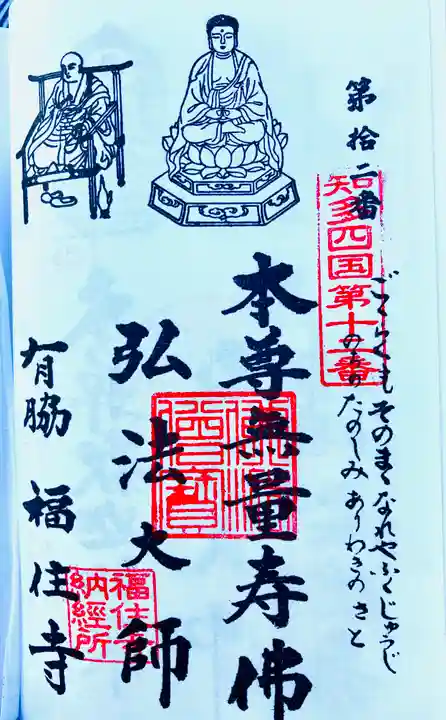 第拾二番
知多四国第十二番
ごくらくも そのまゝなれや ふくじゅうじ
たのしみ ありわきの さと
本尊無量寿佛
弘法大師
福住寺
納經所
有脇 福住寺